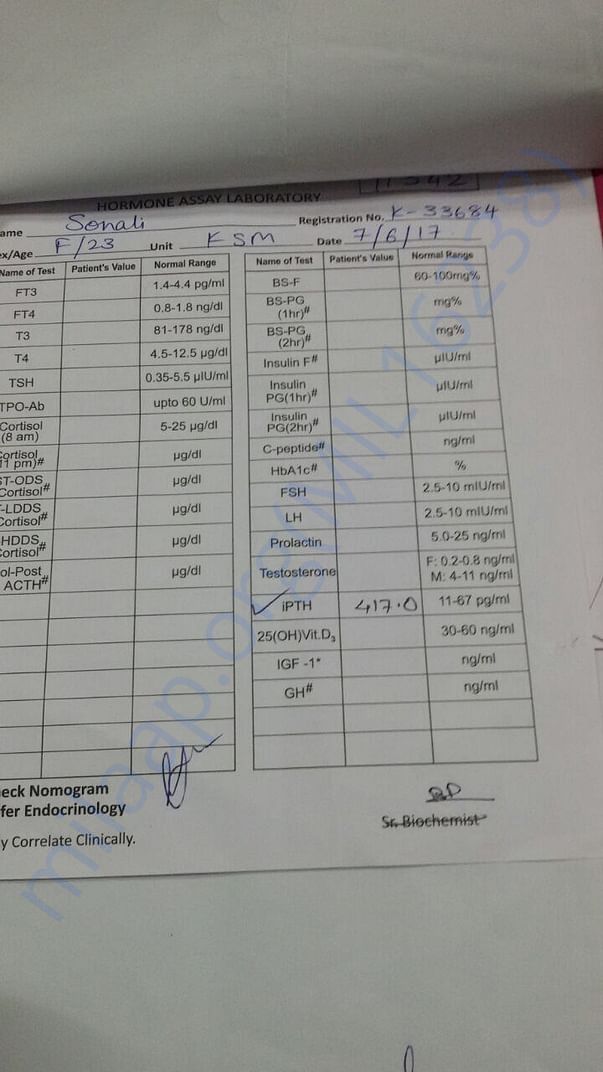 11342
HORMONE ASSAY LABORATORY
ame Sonali Registration No. K-33684
ex/Age F/23 Unit KSM Date 7/6/17
Name of Test Patient's Value Normal Range
FT3 1.4-4.4 pg/ml
FT4 0.8-1.8 ng/dl
T3 81-178 ng/dl
T4 4.5-12.5 µg/dl
TSH 0.35-5.5 µIU/ml
TPO-Ab upto 60 U/ml
Cortisol (8 am) 5-25 µg/dl
ortisol 11 pm)# µg/dl
ST-ODS Cortisol# µg/dl
-LDDS Cortisol# µg/dl
HDDS Cortisol# µg/dl
ol-Post ACTH# µg/dl
Name of Test Patient's Value Normal Range
BS-F 60-100mg%
BS-PG (1hr)# mg%
BS-PG (2hr)# mg%
Insulin F# µIU/ml
Insulin PG(1hr)# µIU/ml
Insulin PG(2hr)# µIU/ml
C-peptide# ng/ml
HbA1c# %
FSH 2.5-10 mIU/ml
LH 2.5-10 mIU/ml
Prolactin 5.0-25 ng/ml
Testosterone F: 0.2-0.8 ng/ml
M: 4-11 ng/ml
iPTH 417.0 11-67 pg/ml
25(OH)Vit.D3 30-60 ng/ml
IGF -1* ng/ml
GH# ng/ml
eck Nomogram
fer Endocrinology
y Correlate Clinically.
Sr. Biochemist